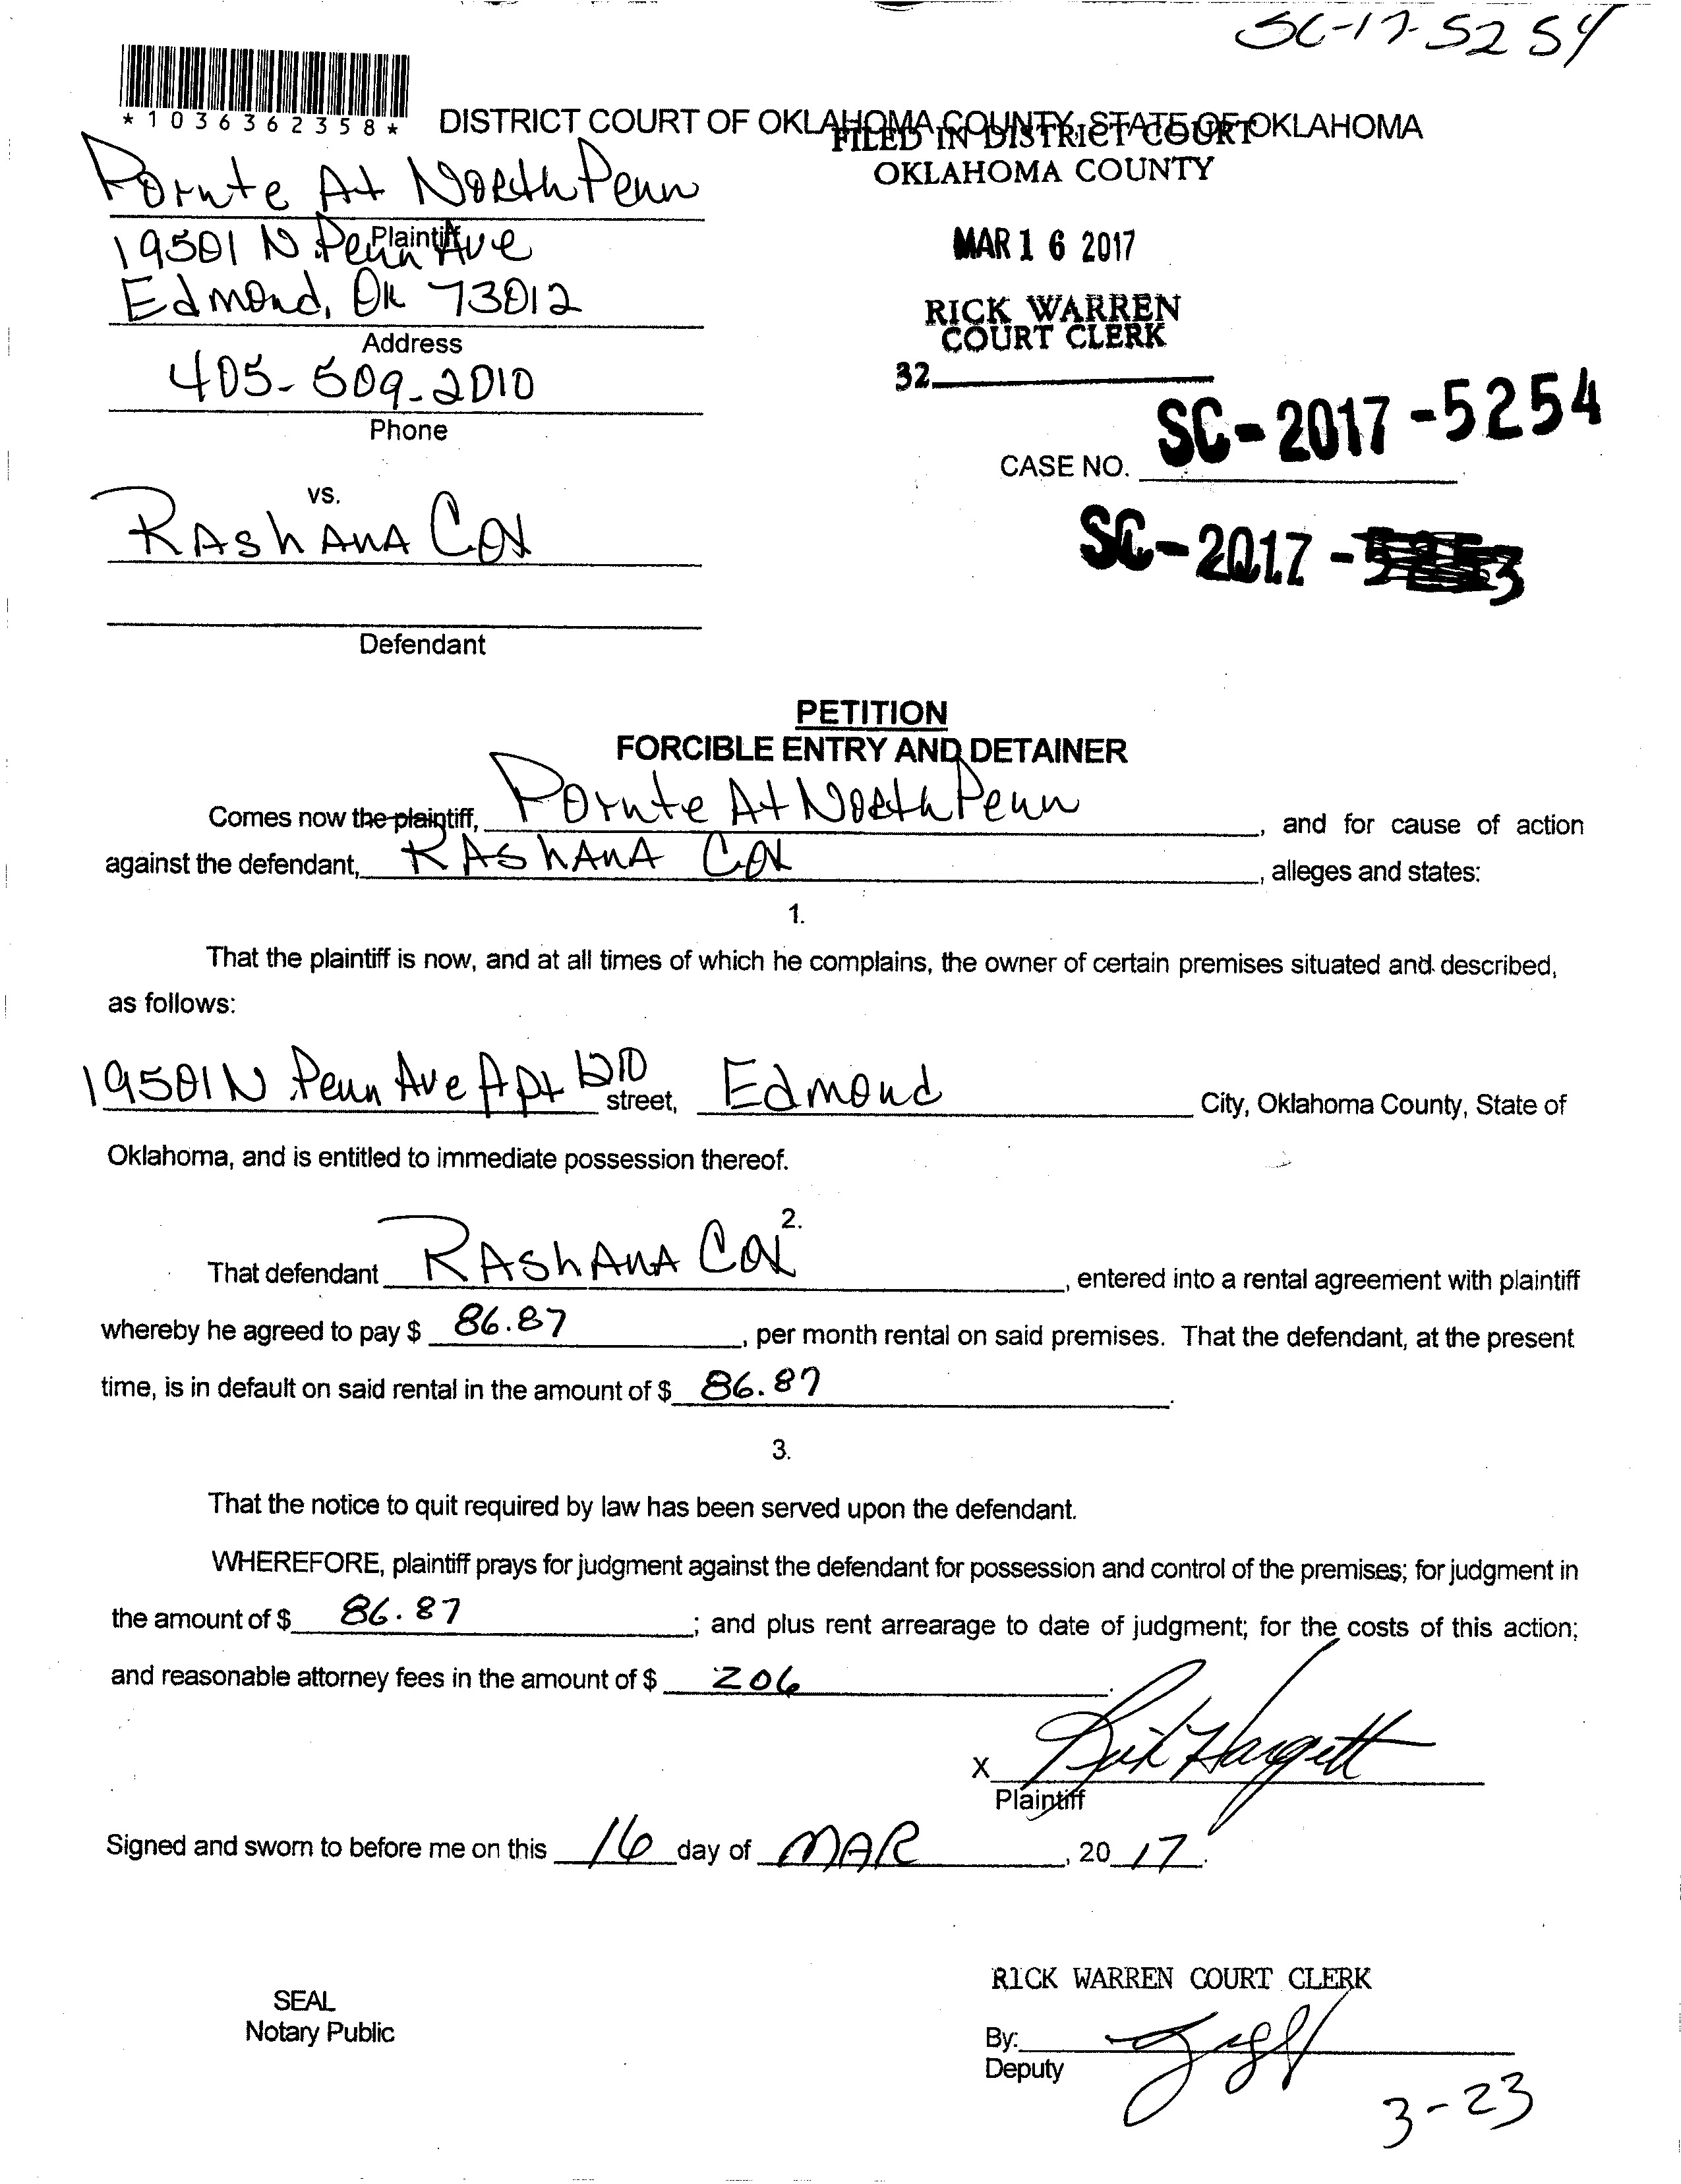 SC-17-5254
*1036362358*
DISTRICT COURT OF OKLAHOMA COUNTY, STATE OF OKLAHOMA
FILED IN DISTRICT COURT
OKLAHOMA COUNTY
Pointe At North Penn
Plaintiff
19501 N. Penn Ave
MAR 16 2017
Edmond, OK 73012
RICK WARREN
COURT CLERK
Address
32
405-509-2010
Phone
CASE NO. SC-2017-5254
vs.
RAshAnA Cox
SC-2017-5253
Defendant
PETITION
FORCIBLE ENTRY AND DETAINER
Comes now the plaintiff, Pointe At North Penn, and for cause of action
against the defendant, RAshAnA Cox, alleges and states:
1.
That the plaintiff is now, and at all times of which he complains, the owner of certain premises situated and described,
as follows:
19501 N Penn Ave Apt 1210 street, Edmond City, Oklahoma County, State of
Oklahoma, and is entitled to immediate possession thereof.
2.
That defendant RAshAnA Cox, entered into a rental agreement with plaintiff
whereby he agreed to pay $ 86.87, per month rental on said premises. That the defendant, at the present
time, is in default on said rental in the amount of $ 86.87.
3.
That the notice to quit required by law has been served upon the defendant.
WHEREFORE, plaintiff prays for judgment against the defendant for possession and control of the premises; for judgment in
the amount of $ 86.87; and plus rent arrearage to date of judgment; for the costs of this action;
and reasonable attorney fees in the amount of $ 206.
X Hargett
Plaintiff
Signed and sworn to before me on this 16 day of MAR, 2017.
RICK WARREN COURT CLERK
SEAL
Notary Public
By:
Deputy
3-23